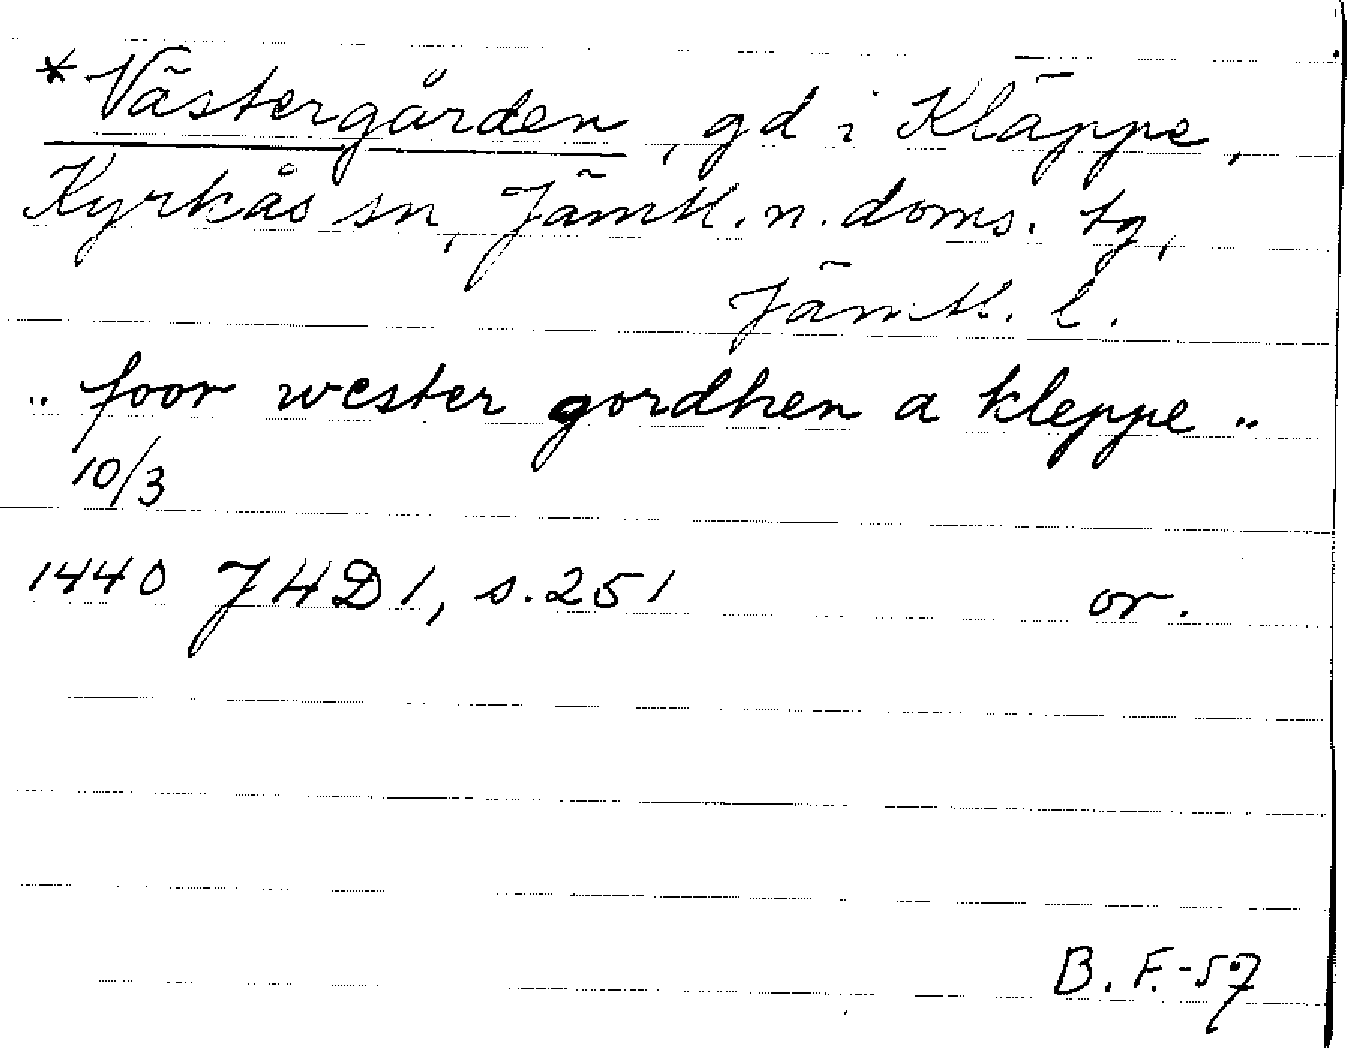 * Västergården, gd i Kläppe,
Kyrkås sn, Jämtl. n. doms. tg,
Jämtl. l.
"foor wester gordhen a kleppe"
10/3
1440 JHD 1, s. 251 or.
B. F. -57